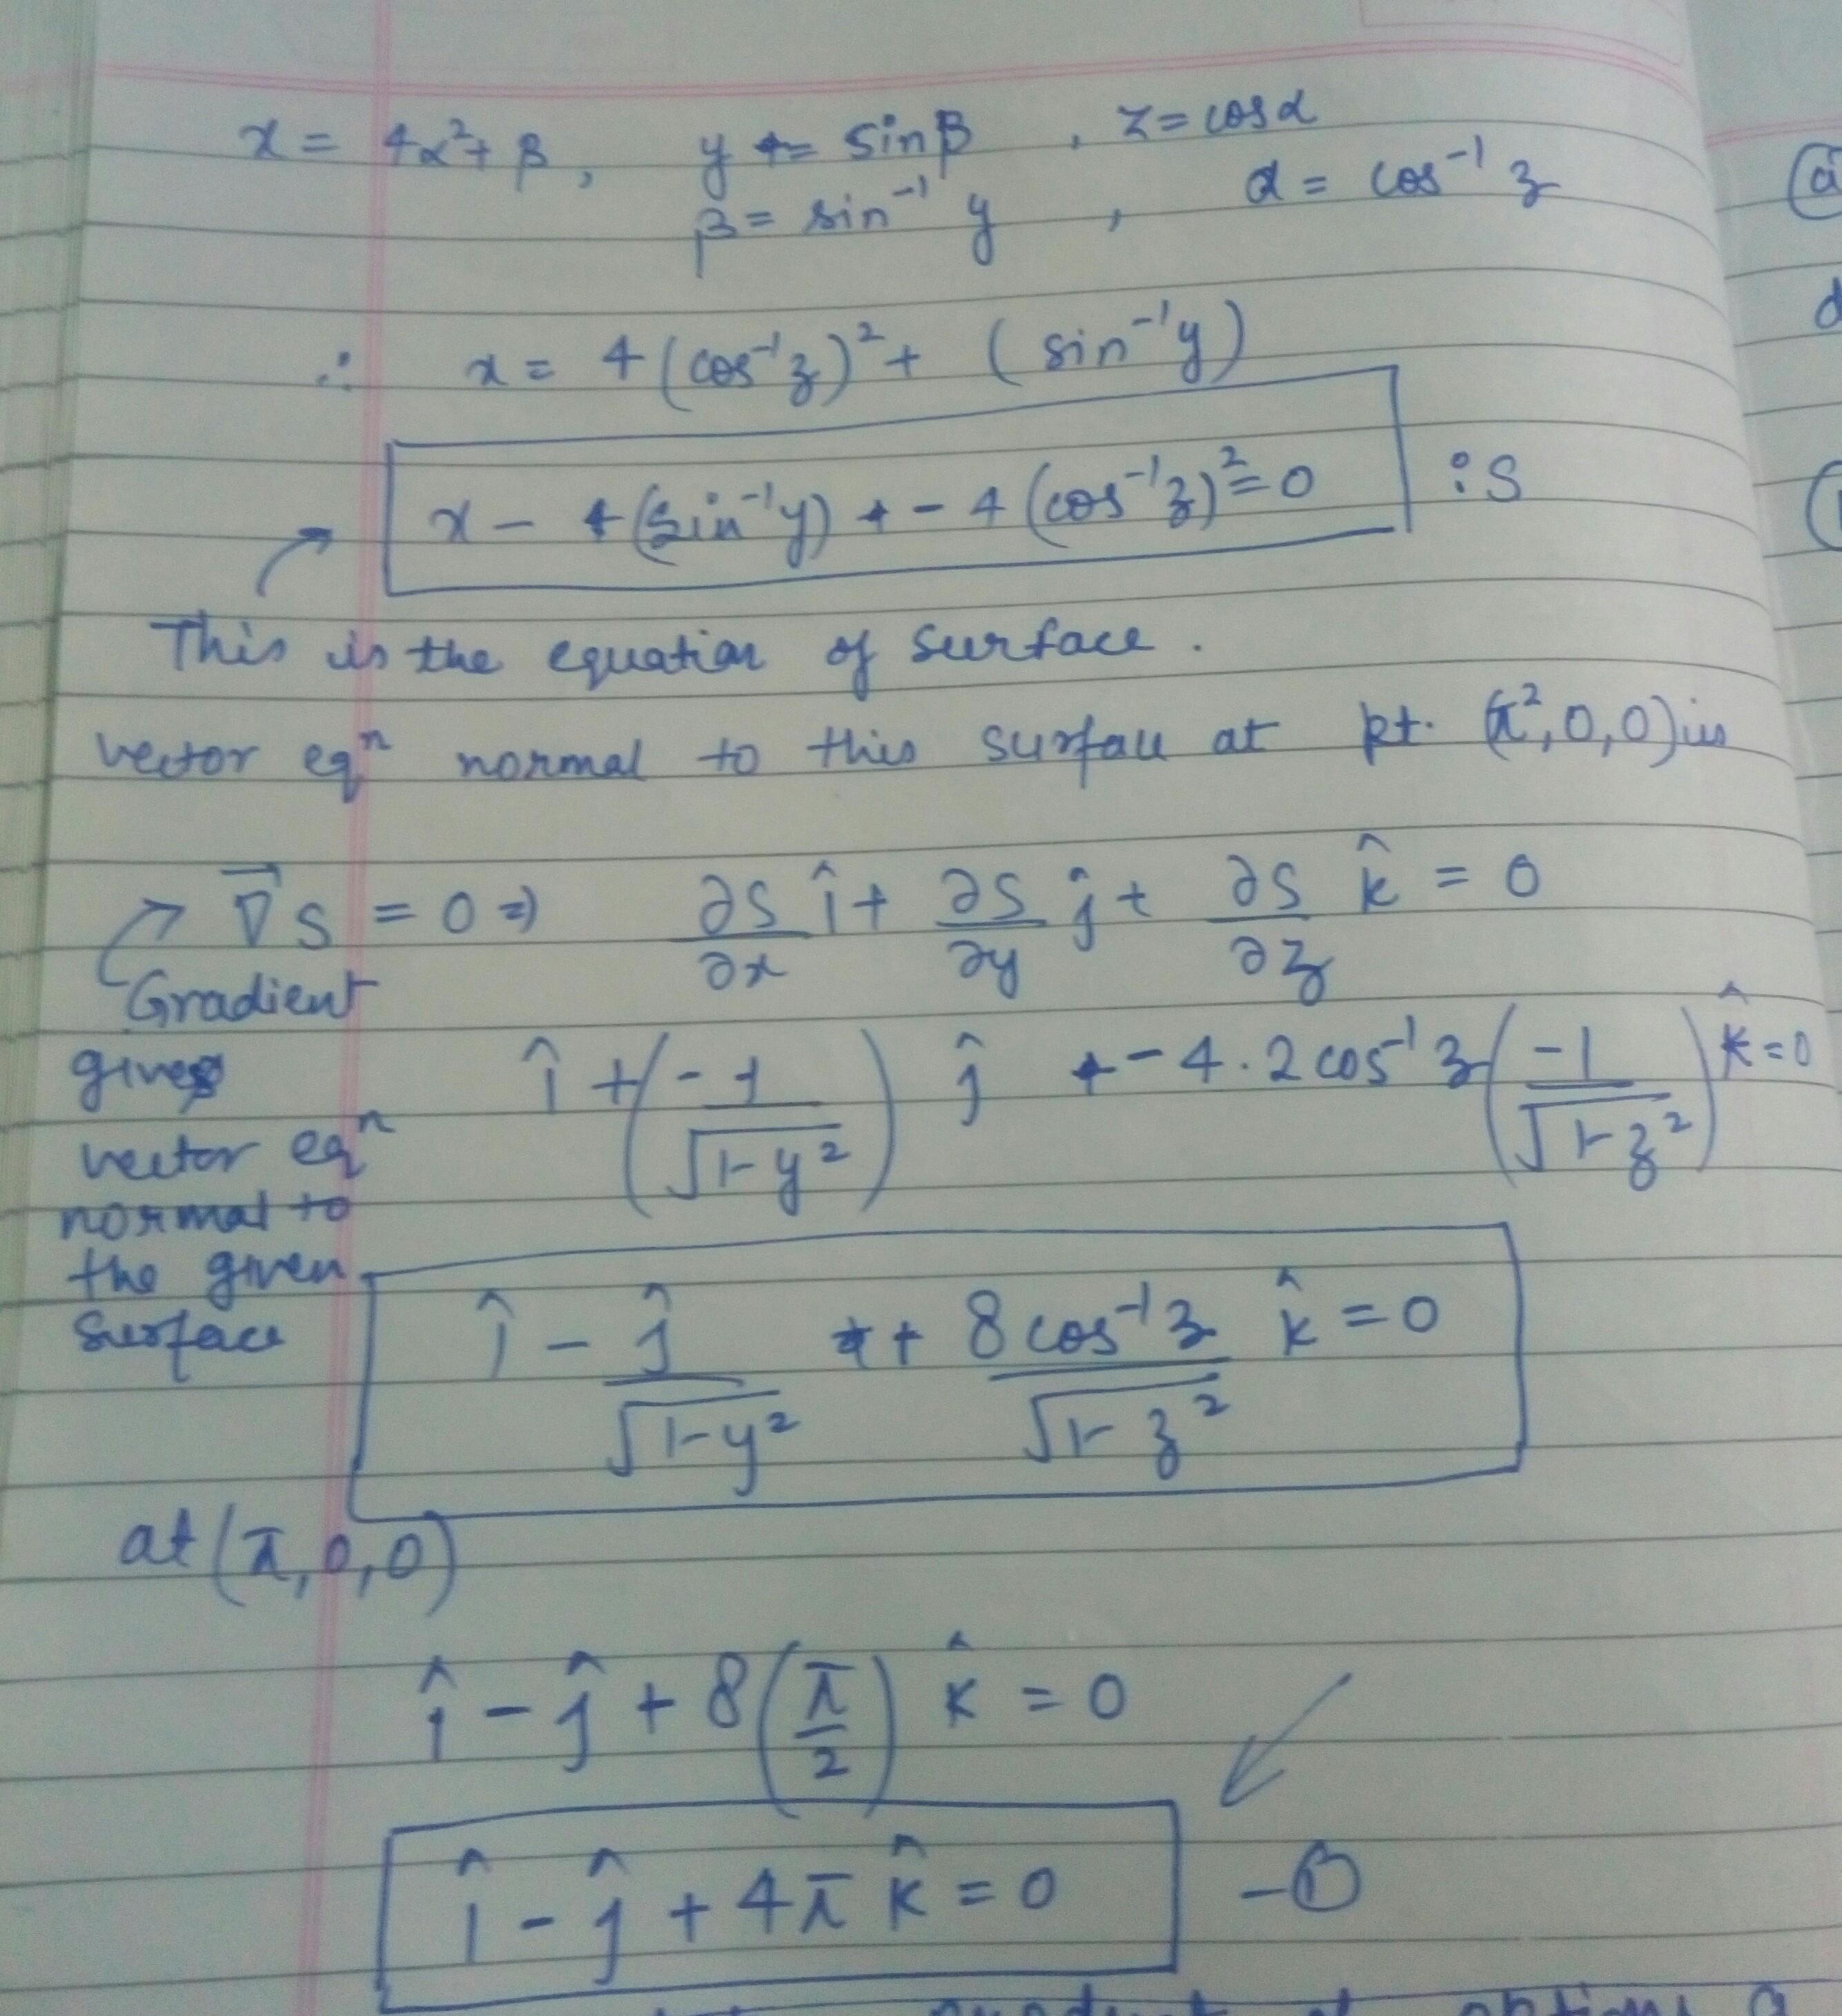 x = 4α² + β, y = sinβ , z = cosα
β = sin⁻¹ y , α = cos⁻¹ z
∴ x = 4(cos⁻¹z)² + (sin⁻¹y)
x - (sin⁻¹y) - 4(cos⁻¹z)² = 0 : S
This is the equation of surface.
vector eqⁿ normal to this surface at pt. (π²,0,0) is
∇S = 0 ⇒ ∂S/∂x î + ∂S/∂y ĵ + ∂S/∂z k̂ = 0
Gradient
gives
vector eqⁿ
normal to
the given
surface
î + (-1/√(1-y²)) ĵ - 4.2cos⁻¹z (-1/√(1-z²)) k̂ = 0
î - ĵ/√(1-y²) + 8cos⁻¹z/√(1-z²) k̂ = 0
at (π,0,0)
î - ĵ + 8(π/2) k̂ = 0
î - ĵ + 4π k̂ = 0